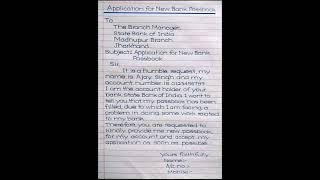 Application for New Bank Passbook
To
The Branch Manager,
State Bank of India
Madhupur Branch
Jharkhand
Subject:- Application for New Bank
Passbook
Sir,
It is a humble request, my
name is Ajay Singh and my
account number is
I am the account holder of your
bank State Bank of India. I want to
tell you that my passbook has been
filled, due to which I am facing a
problem in doing some work related
to my bank.
Therefore, you are requested to
kindly provide me new passbook
for my account and accept my
application as soon as possible.
Yours faithfully
Name:-
A/c no:-
Mobile:-